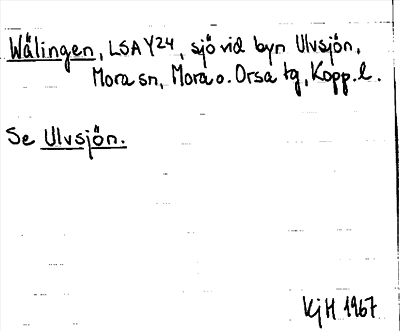 Wålingen, LSA Y24, sjö vid byn Ulvsjön,
Mora sn, Mora o. Orsa tg, Kopp. l.
Se Ulvsjön.
KjH 1967